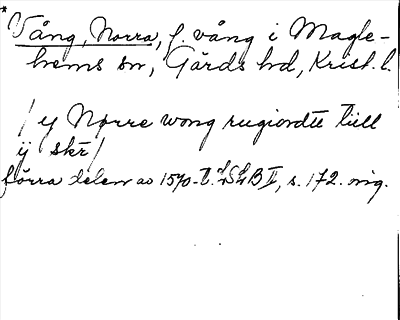 * Vång, Norra, f. vång i Magle-
hems sn, Gärds hd, Krist. l.
/ y Nørre wong rugiordtt tiill
ij skr /
förra delen av 1570-t. LSLB II, s. 172. mg.